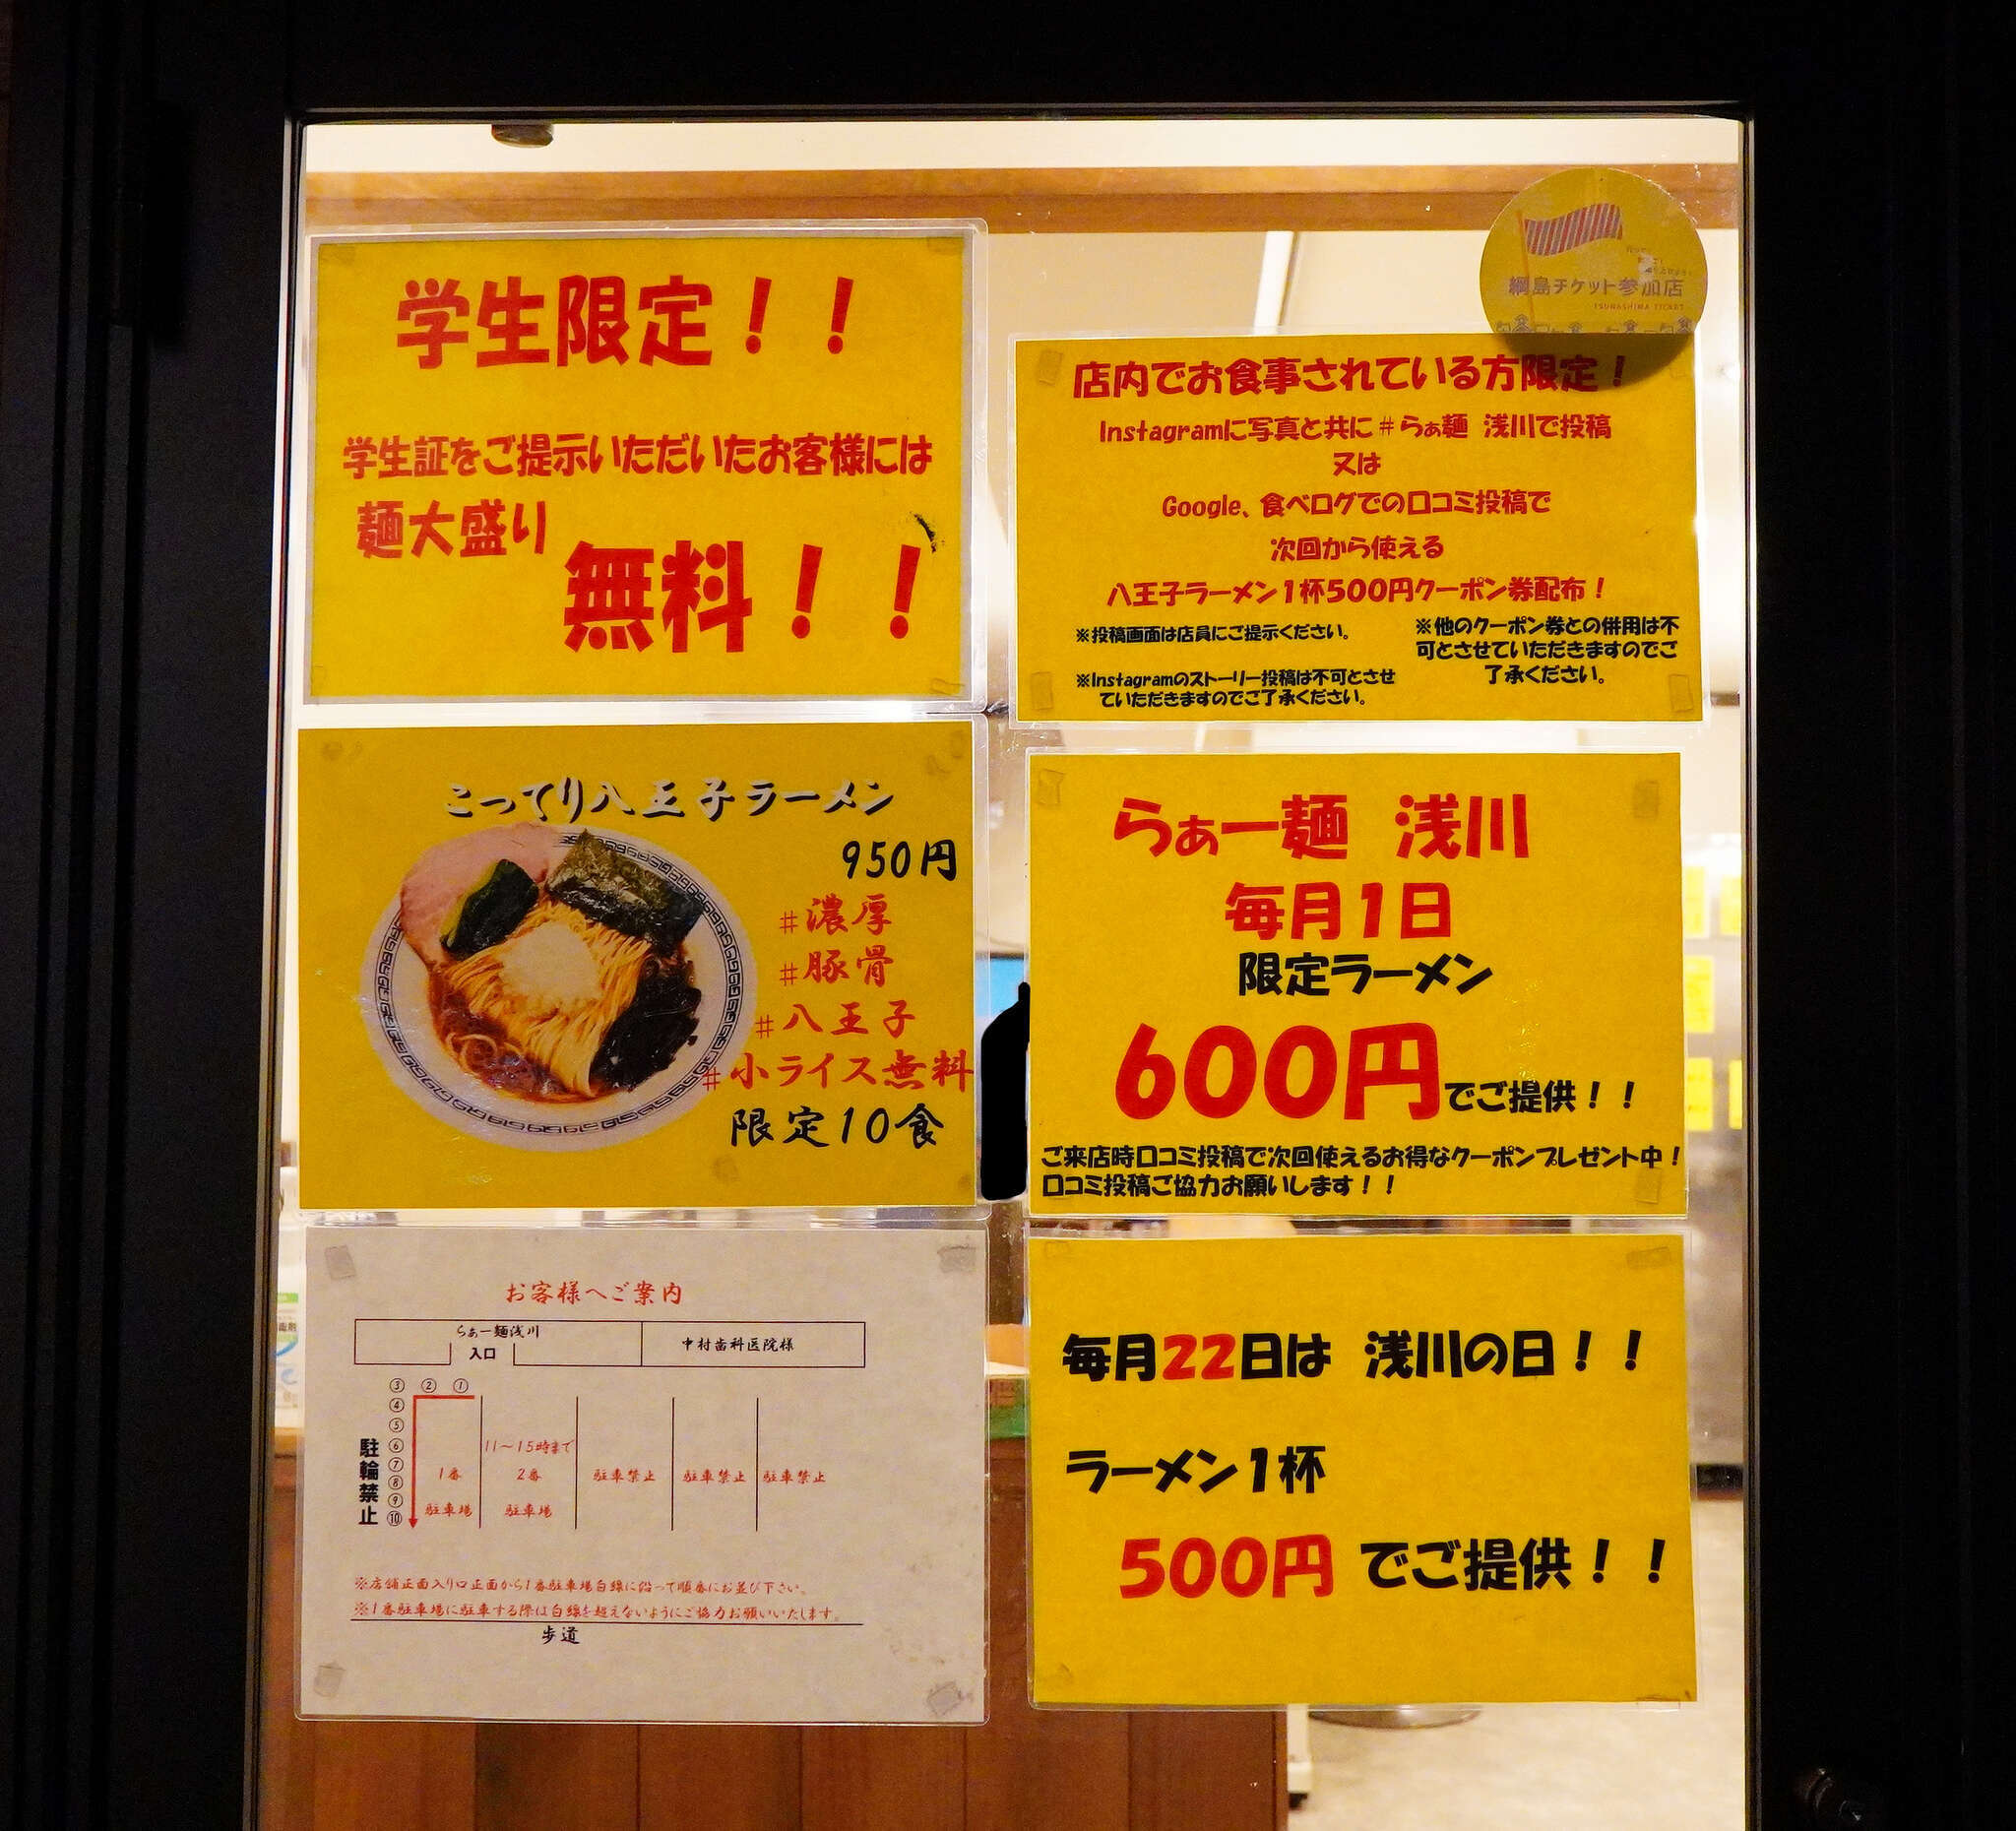 学生限定！！
学生証をご提示いただいたお客様には
麺大盛り
無料！！
綱島チケット参加店
TSUNASHIMA TICKET
店内でお食事されている方限定！
Instagramに写真と共に＃らぁ麺 浅川で投稿
又は
Google、食べログでの口コミ投稿で
次回から使える
八王子ラーメン1杯500円クーポン券配布！
※投稿画面は店員にご提示ください。
※Instagramのストーリー投稿は不可とさせ
ていただきますのでご了承ください。
※他のクーポン券との併用は不
可とさせていただきますのでご
了承ください。
こってり八王子ラーメン
950円
#濃厚
#豚骨
#八王子
#小ライス無料
限定10食
らぁー麺 浅川
毎月1日
限定ラーメン
600円でご提供！！
ご来店時口コミ投稿で次回使えるお得なクーポンプレゼント中！
口コミ投稿ご協力お願いします！！
お客様へご案内
らぁー麺浅川
入口
中村歯科医院様
③ ② ①
④
⑤
⑥
⑦
⑧
⑨
⑩
駐輪禁止
1番
駐車場
11～15時まで
2番
駐車場
駐車禁止
駐車禁止
駐車禁止
※店舗正面入り口正面から1番駐車場白線に沿って順番にお並び下さい。
※1番駐車場に駐車する際は白線を超えないようにご協力お願いいたします。
歩道
毎月22日は 浅川の日！！
ラーメン1杯
500円 でご提供！！